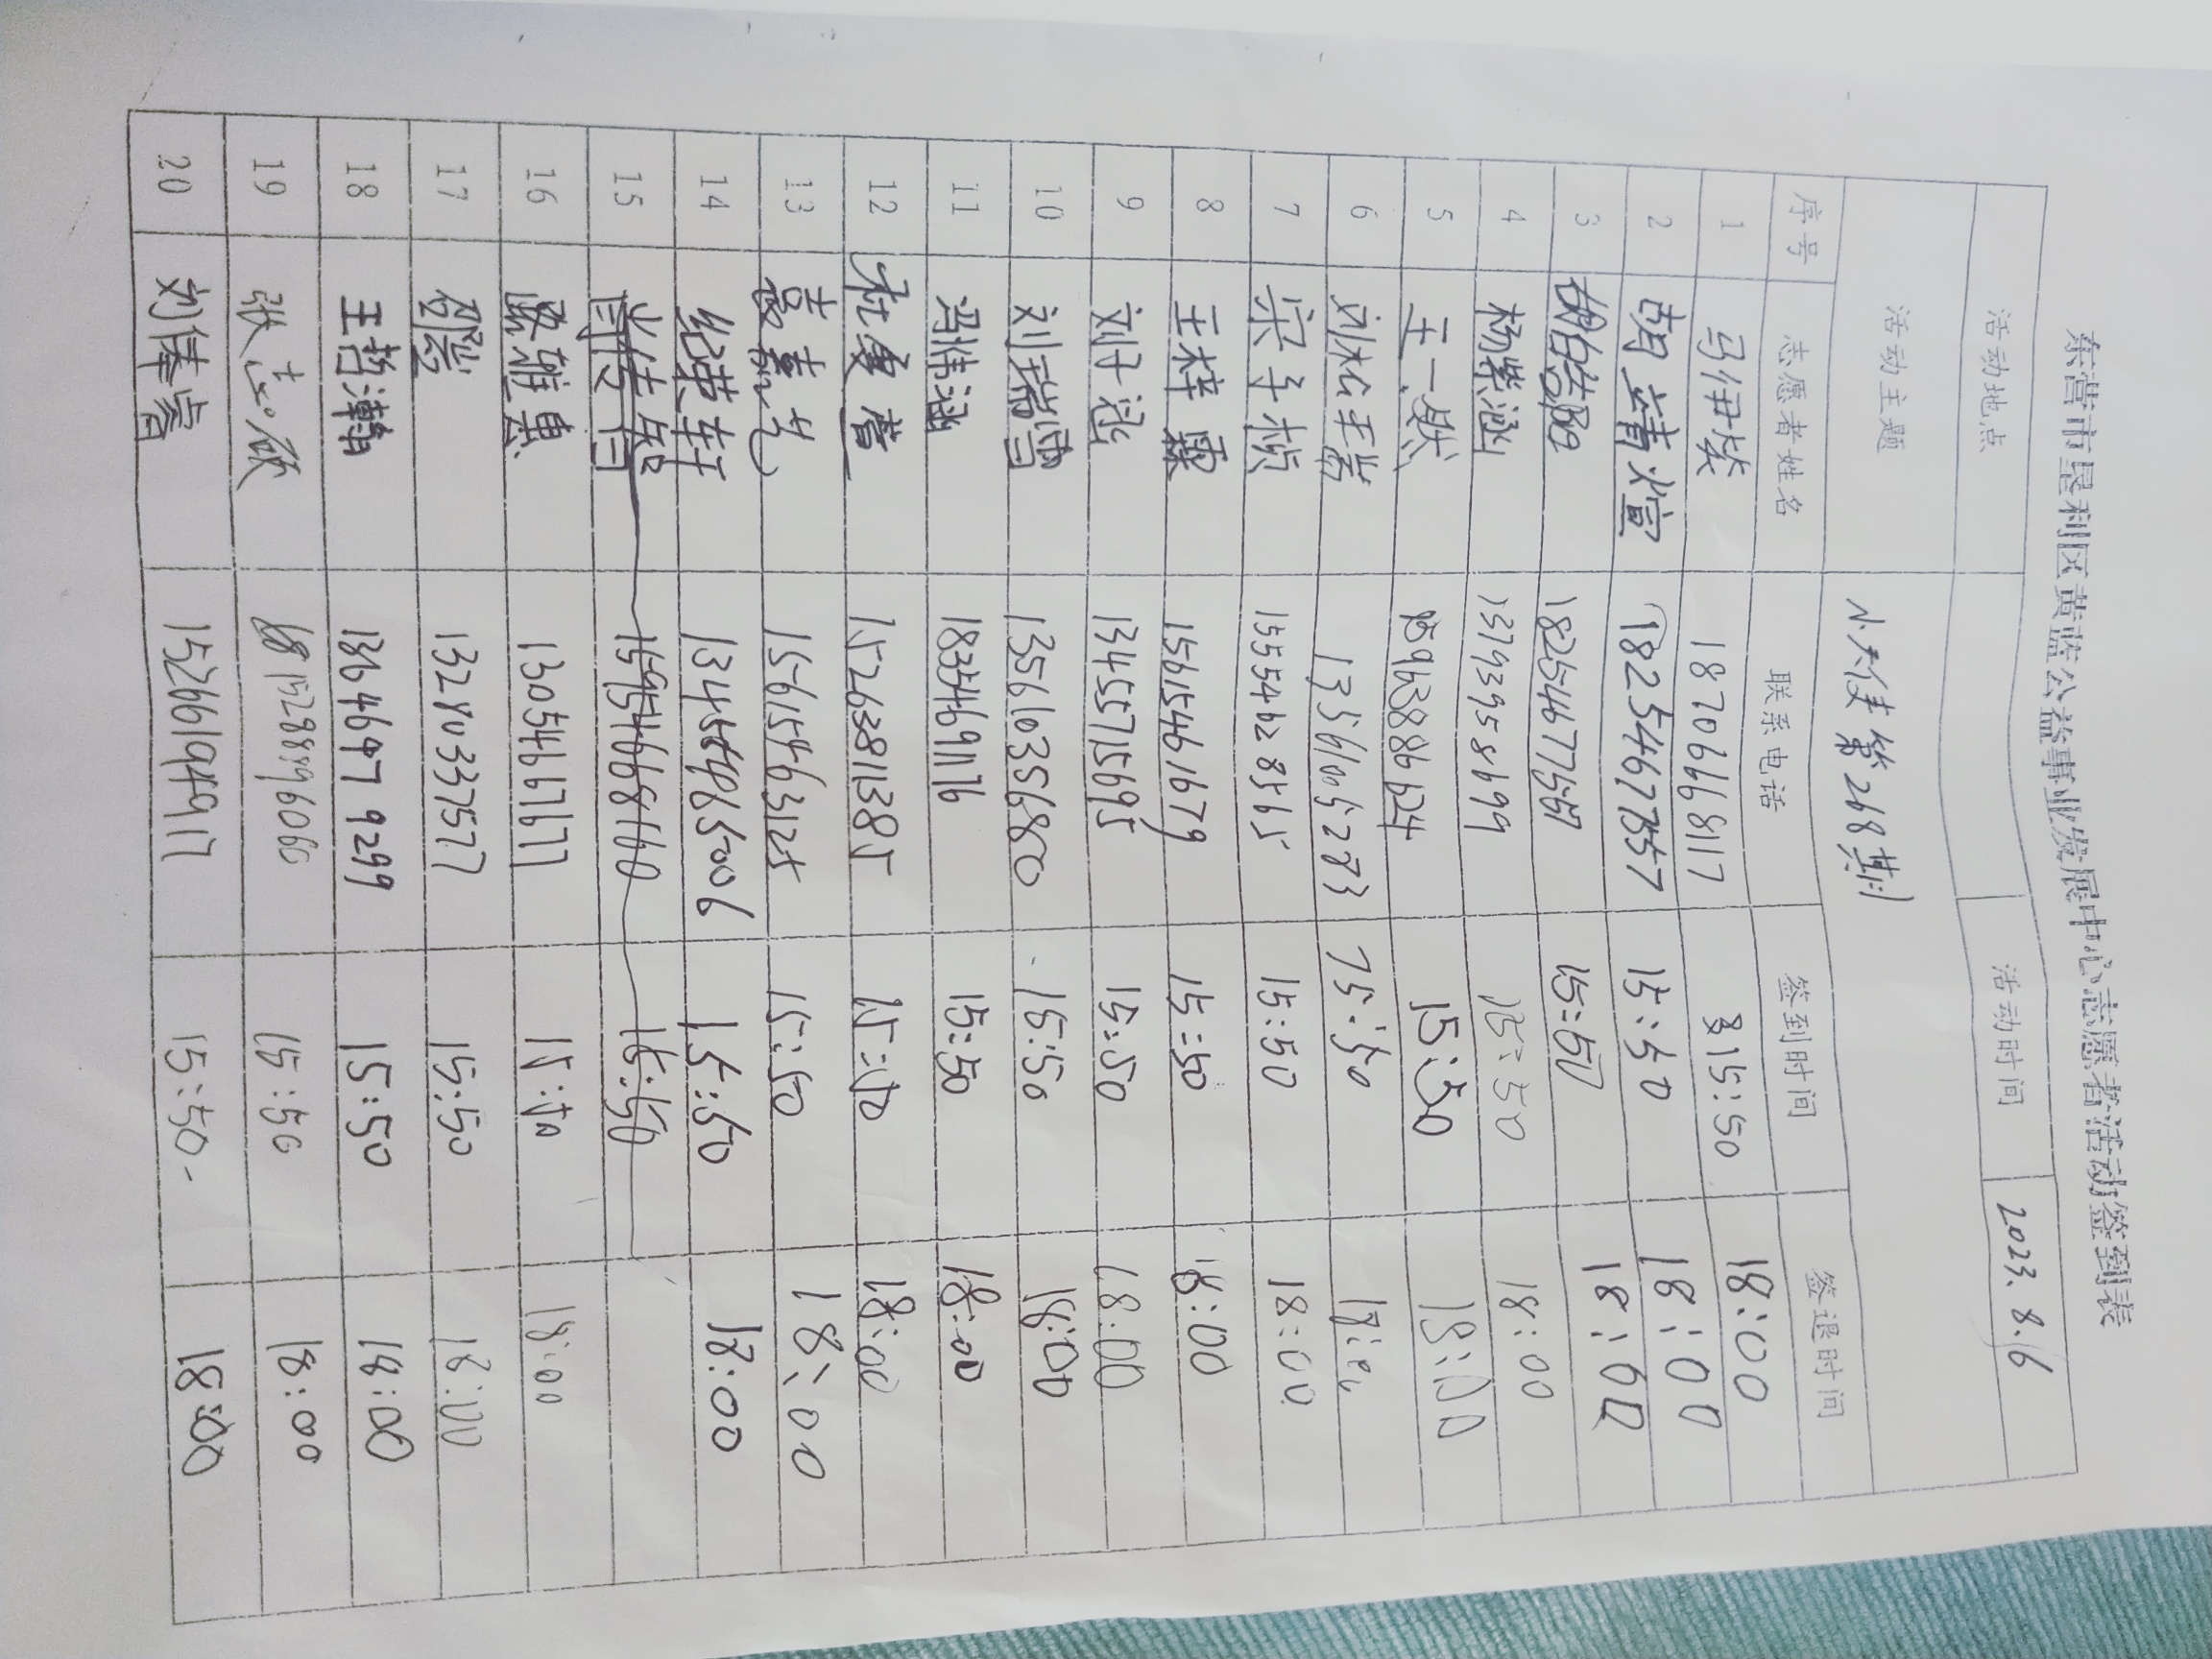 东营市垦利区黄蓝公益事业发展中心志愿者活动签到表
活动地点 活动时间 2023.8.16
活动主题 小天使第268期
序号 志愿者姓名 联系电话 签到时间 签退时间
1 马伊 18706668117 15:50 18:00
2 胡靖煊 18254677557 15:50 18:00
3 胡皓阳 18254677557 15:50 18:00
4 杨紫涵 13793958699 15:50 18:00
5 王一 15963886624 15:50 18:00
6 刘松 13561052783 15:50 18:00
7 宋子桢 15554628565 15:50 18:00
8 王梓霖 15615461679 15:50 18:00
9 刘子涵 13455715695 15:50 18:00
10 刘瑞雪 13561035680 15:50 18:00
11 冯梓涵 18354691176 15:50 18:00
12 杜 15263811385 15:50 18:00
13 15615463125 15:50 18:00
14 纪英轩 15:50 18:00
15 15954668160 15:50
16 雅 13054667677 15:50 18:00
17 13280337577 15:50 18:00
18 王哲瀚 13646479299 15:50 18:00
19 张志 15288896060 15:50 18:00
20 刘俸睿 15266194917 15:50 18:00